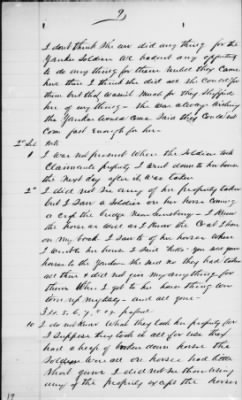 9
I dont think she ever did any thing for the
Yankee Soldiers We hadent any oppertunity
to do any thing for them Until they came
here then I think she did all she could for
them but that wasnt much for they stripped
her of any thing - she was always wishing
the Yankees would come said they couldent
come fast enough for her -
2nd Set Nile
1 I was not present When the Soldiers took
Claimants property I went down to her house
the next day after it was taken
2 I did not see any of her property taken
but I Saw a Soldier on her horse coming
across the bridge near - I knew
the horse as well as I know the Coat I have
on my back I went to her house when
I seen the her horse I said you see your
horse to the Yankees she said no they had taken
all this & did not give my any thing for
them When I got to her house thing were
torn up and all gone -
3. 4. 5, 6, 7, 8 & 9 proposed
10 I do not know What they took her property for
I suppose they took it all for use they
had a heap of broken down horses the
Soldiers were all on horses had both
Short guns I did not see them using
any of the property except the horses
19